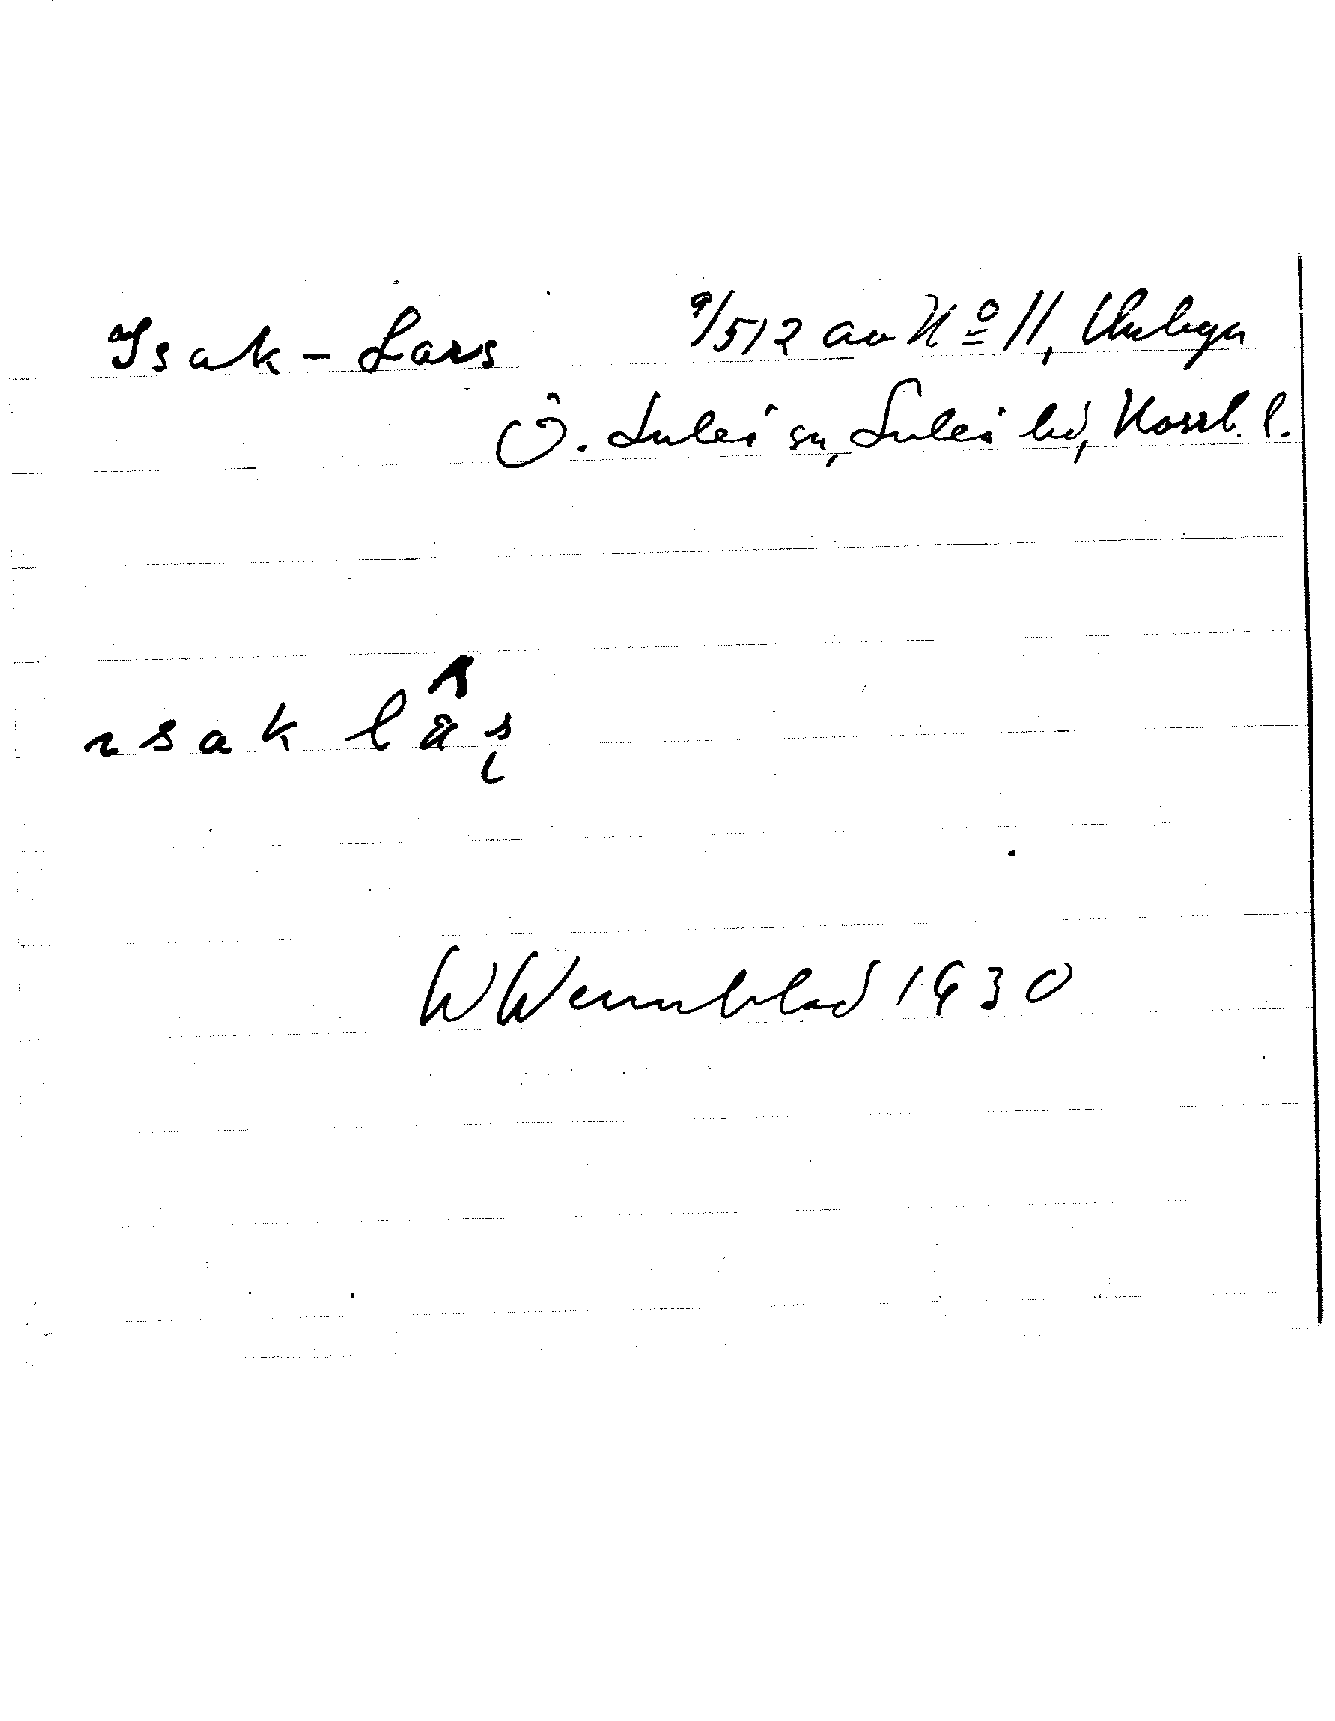 Isak-Lars 9/512 av Nº 11, Unbyn
Ö. Luleå sn, Luleå hd, Norrb. l.
ısak lâ̂ș
W Wennblad 1930